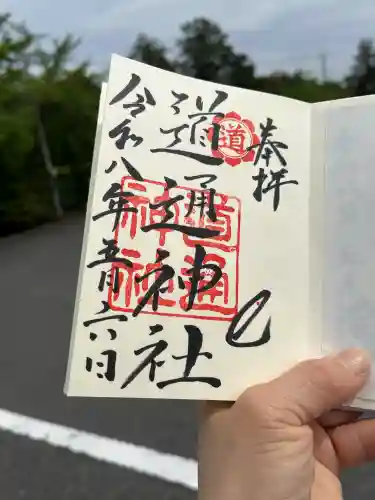 奉拝
道
道通神社
道通
神社
令和八年五月六日